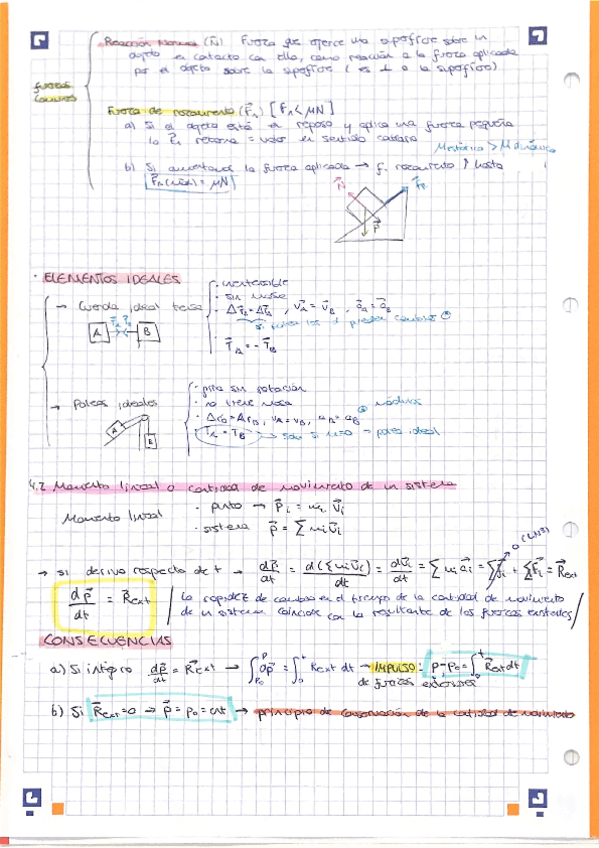 Reacción Normal (N⃗) Fuerza que ejerce una superficie sobre un
objeto en contacto con ella, como reacción a la fuerza aplicada
por el objeto sobre la superficie (es ⊥ a la superficie)
fuerzas
comunes
Fuerza de rozamiento (F⃗r) [Fr ≤ μN]
a) Si el objeto está en reposo y aplica una fuerza pequeña
la F⃗r reacciona = valor en sentido contrario
μestático > μdinámico
b) Si aumentamos la fuerza aplicada → f. rozamiento ↑ hasta
F⃗r(máx) = μN
N⃗
F⃗r
P⃗
· ELEMENTOS IDEALES
→ Cuerda ideal tensa
· inextensible
· sin masa
· Δr⃗A = Δr⃗B, v⃗A = v⃗B, a⃗A = a⃗B
T⃗A T⃗B
A B
· T⃗A = - T⃗B
→ Poleas ideales
· gira sin rotación
· no tiene masa
módulos
· ΔrA = ΔrB, vA = vB, aA = aB
· TA = TB → solo si μ=0 → polea ideal
A
B
4.2 Momento lineal o cantidad de movimiento de un sistema
Momento lineal
· punto → p⃗i = mi v⃗i
· sistema p⃗ = Σ mi v⃗i
→ si derivo respecto de t → dp⃗/dt = d(Σ mi v⃗i)/dt = dv⃗i/dt = Σ mi a⃗i = Σ f⃗i + Σ F⃗i = R⃗ext
0 (LN3)
dp⃗/dt = R⃗ext / La rapidez de cambio en el tiempo de la cantidad de movimiento
de un sistema coincide con la resultante de las fuerzas exteriores /
CONSECUENCIAS
a) Si integro dp⃗/dt = R⃗ext → ∫_{p0}^{p} dp⃗ = ∫_0^t Rext dt → IMPULSO: p⃗-p⃗0 = ∫_0^t R⃗ext dt
de fuerzas exteriores
b) Si R⃗ext = 0 → p⃗ = p0 = cnt → principio de conservación de la cantidad de movimiento